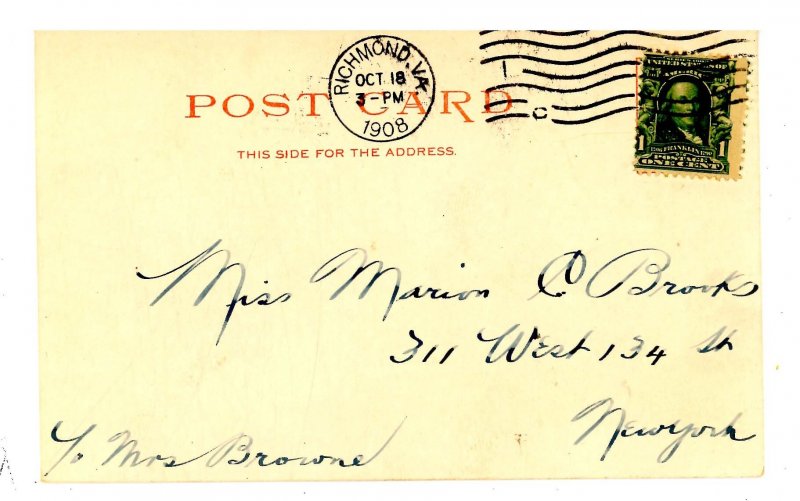 RICHMOND, VA.
OCT 18
3-PM
1908
POST CARD
THIS SIDE FOR THE ADDRESS.
UNITED STATES OF
1 FRANKLIN 1
POSTAGE
ONE CENT
Miss Marion C Brooks
311 West 134 St
New York
℅ Mrs Browne